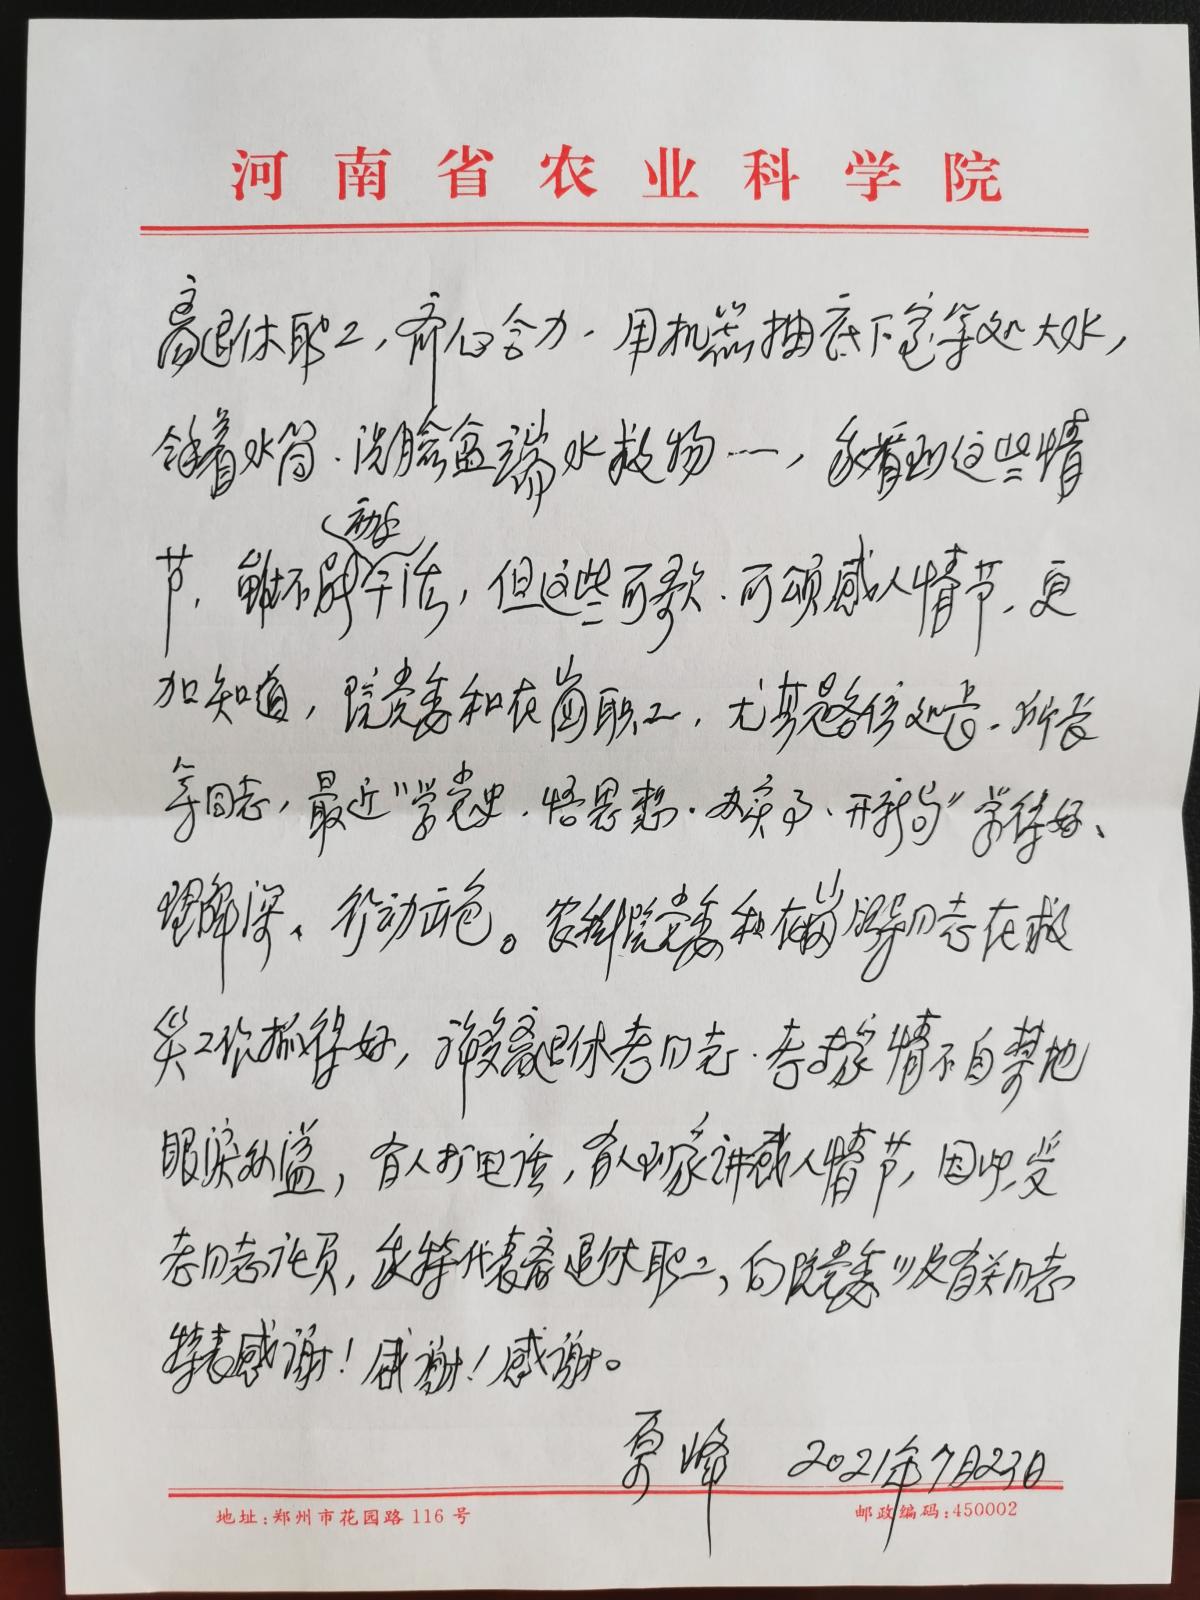 河南省农业科学院
离退休职工,齐心合力、用机器抽底下室等处大水,
拿着水筒、洗脸盆端水救物……,我看到这些情
节,虽不能办干活,但这些可歌、可颂感人情节,更
加知道,院党委和在岗职工,尤其是各位处长、所长
等同志,最近“学党史、悟思想、办实事、开新局”学得好、
理解深、行动出色。农科院党委和在岗同志在救
灾工作抓得好,许多离退休老同志、老专家情不自禁地
眼泪外溢,有人打电话,有人到家讲感人情节,因此,受
老同志托负,我特代表离退休职工,向院党委以及有关同志
特表感谢!感谢!感谢。
峰 2021年7月23日
地址:郑州市花园路116号
邮政编码:450002